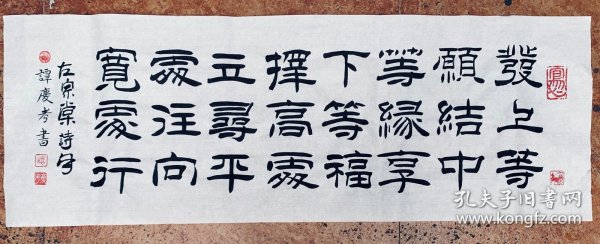 發上等
願結中
等緣享
下等福
擇高處
立尋平
處住向
寬處行
左宗棠詩句
譚慶孝書
孔夫子旧书网
www.kongfz.com